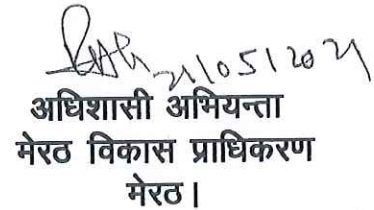 21/05/2021
अधिशासी अभियन्ता
मेरठ विकास प्राधिकरण
मेरठ।